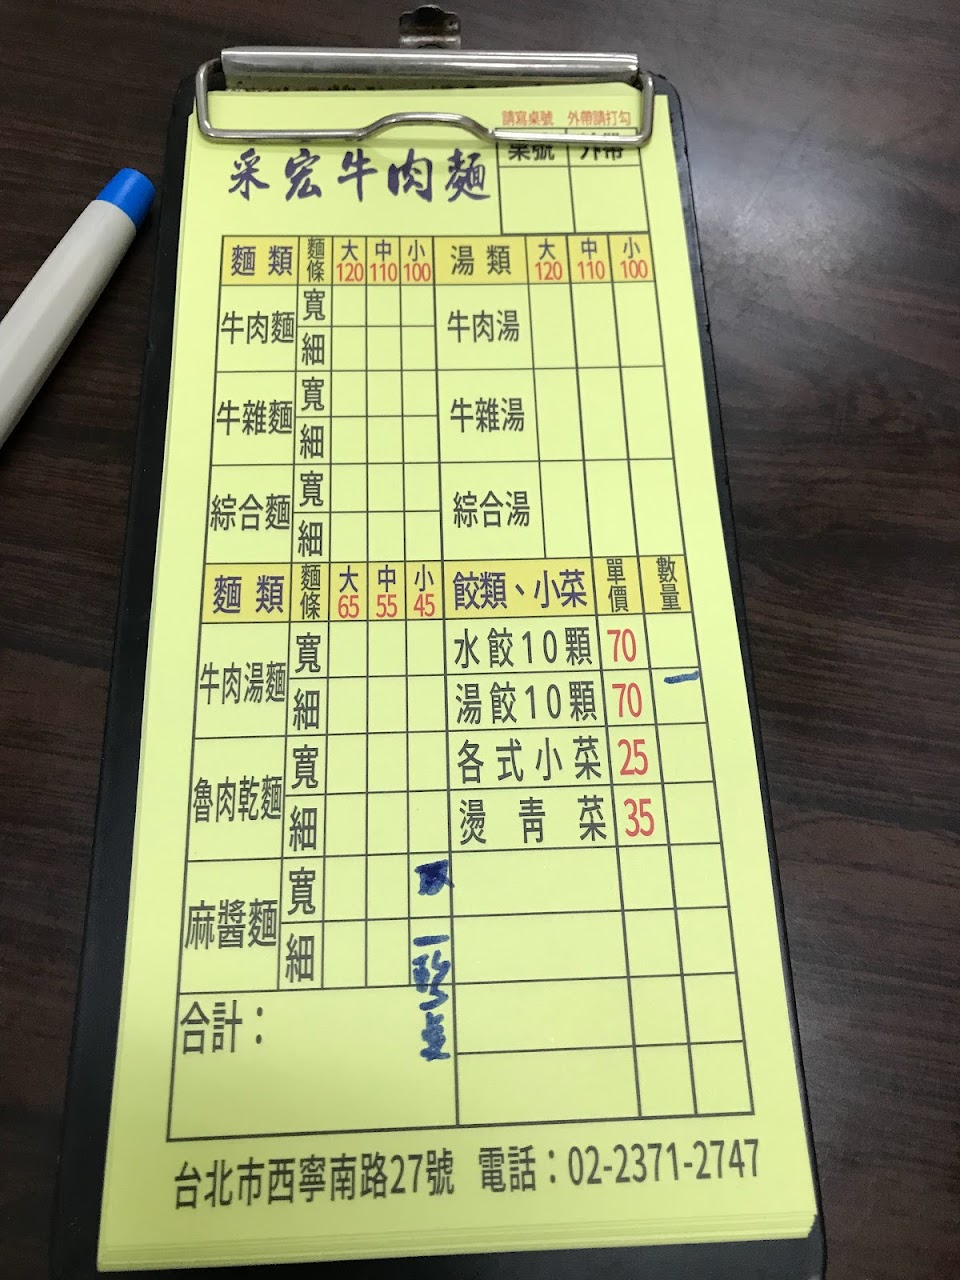 請寫桌號 外帶請打勾
桌號 外帶
采宏牛肉麵
麵類 麵條 大120 中110 小100 湯類 大120 中110 小100
牛肉麵 寬 牛肉湯
細
牛雜麵 寬 牛雜湯
細
綜合麵 寬 綜合湯
細
麵類 麵條 大65 中55 小45 餃類、小菜 單價 數量
牛肉湯麵 寬 水餃10顆 70
細 湯餃10顆 70 一
魯肉乾麵 寬 各式小菜 25
細 燙青菜 35
麻醬麵 寬
細 一
合計：
台北市西寧南路27號 電話：02-2371-2747